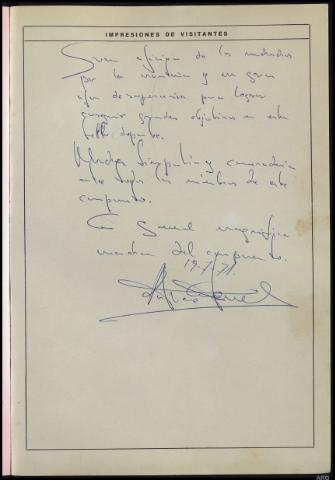 IMPRESIONES DE VISITANTES
Gran afición de los
por la y un gran
afán de superación para lograr
conseguir grandes objetivos en este
bello deporte.
Mucha simpatía y camaradería
entre todos los miembros de este
campamento.
En General magnífica
marcha del campamento.
ARG